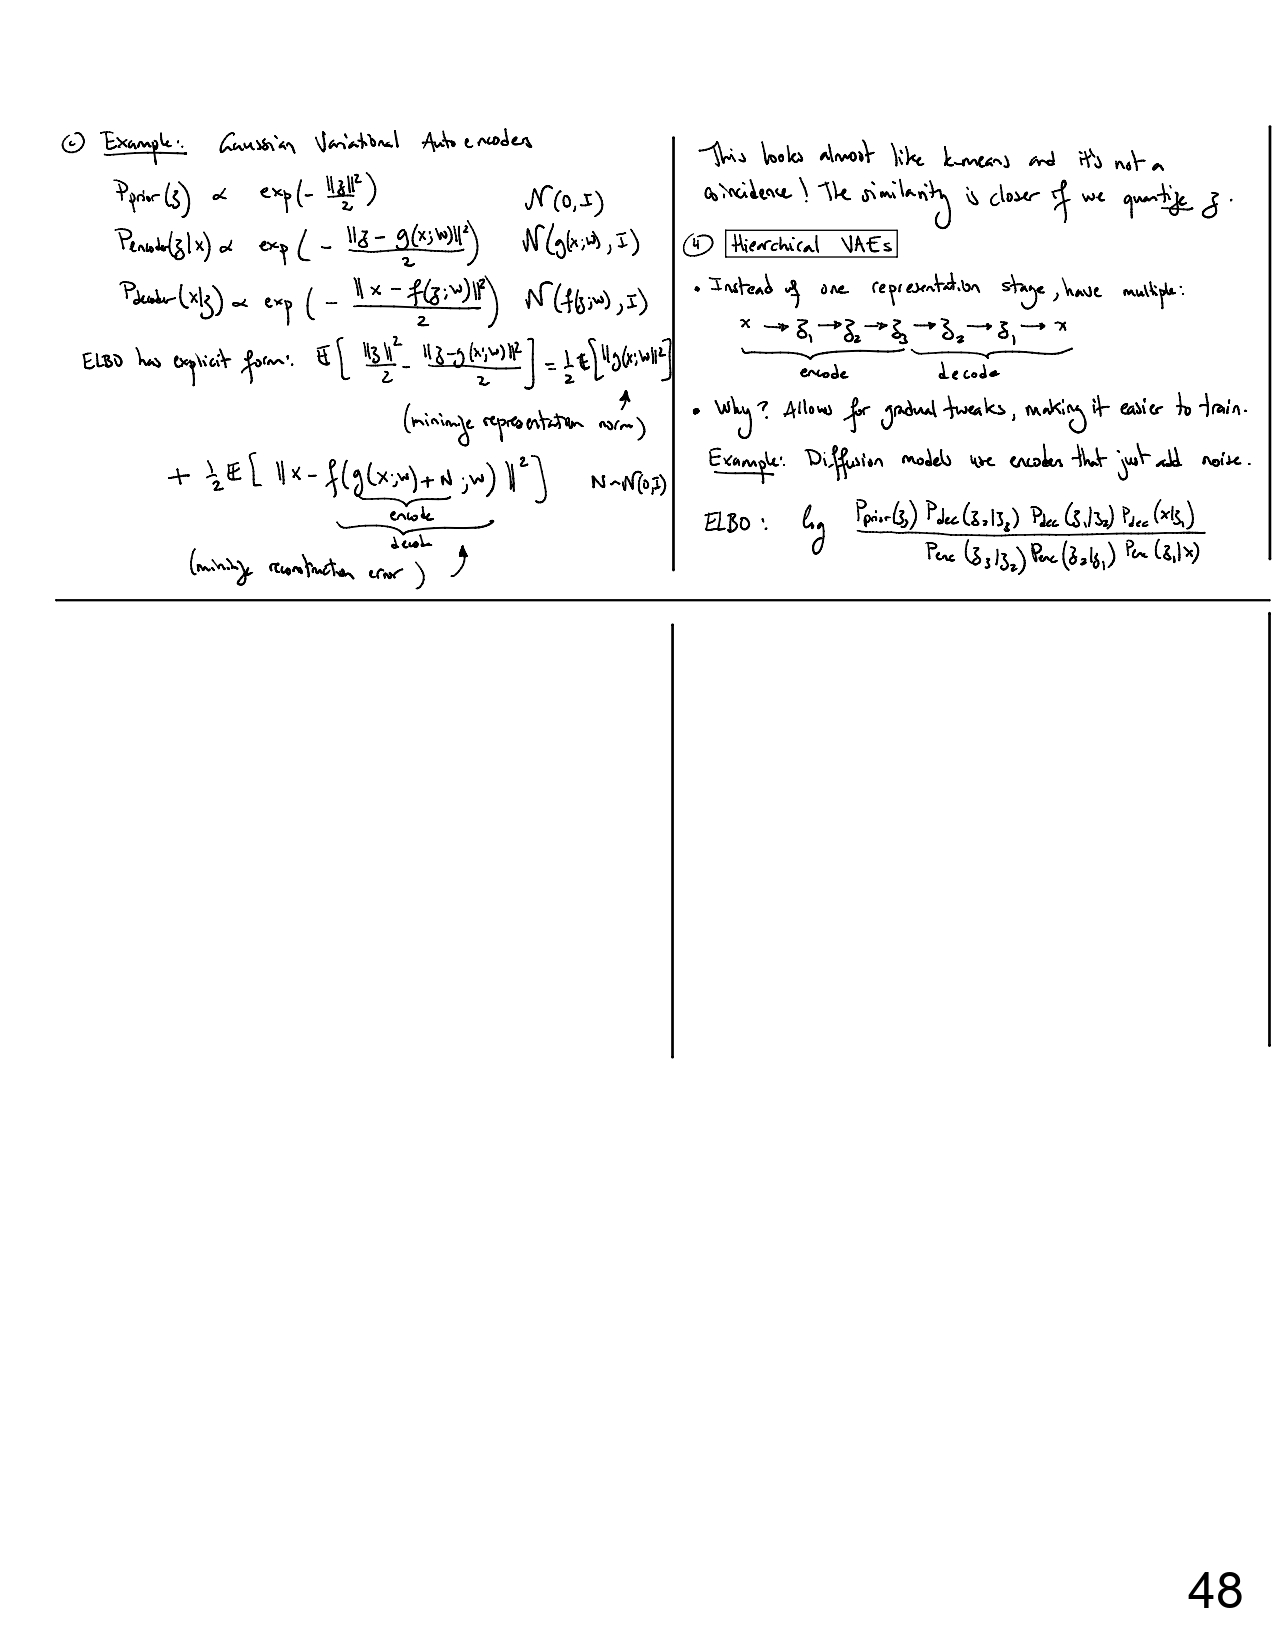 c Example: Gaussian Variational Autoencoders
Pprior(z) ∝ exp(- ||z||²/2) N(0, I)
Pencoder(z|x) ∝ exp(- ||z - g(x;w)||²/2) N(g(x;w), I)
Pdecoder(x|z) ∝ exp(- ||x - f(z;w)||²/2) N(f(z;w), I)
ELBO has explicit form: E[ ||z||²/2 - ||z-g(x;w)||²/2 ] = ½ E[||g(x;w)||²]
(minimize representation norm)
+ ½ E[ ||x - f(g(x;w)+N ;w)||² ] N~N(0,I)
encode
decode
(minimize reconstruction error)
This looks almost like k-means and it's not a
coincidence! The similarity is closer if we quantize z.
4 Hierarchical VAEs
• Instead of one representation stage, have multiple:
x → z₁ → z₂ → z₃ → z₂ → z₁ → x
encode decode
• Why? Allows for gradual tweaks, making it easier to train.
Example: Diffusion models use encoder that just add noise.
ELBO: log Pprior(z₃) Pdec(z₂|z₃) Pdec(z₁|z₂) Pdec(x|z₁)
Penc(z₃|z₂) Penc(z₂|z₁) Penc(z₁|x)
48